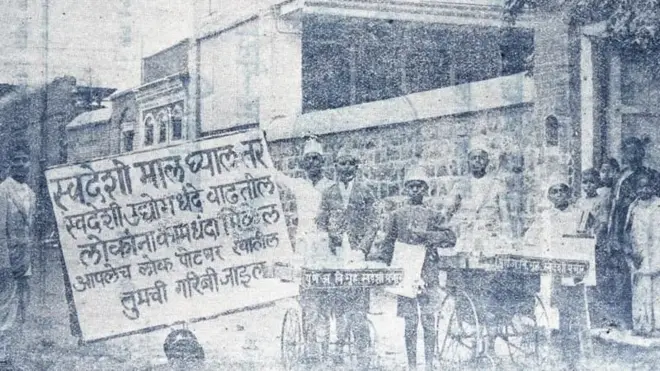 स्वदेशी माल घ्याल तर
स्वदेशी उद्योगधंदे वाढतील
लोकांना कामधंदा मिळेल
आपलेच लोक पोटभर खातील
तुमची गरिबी जाईल